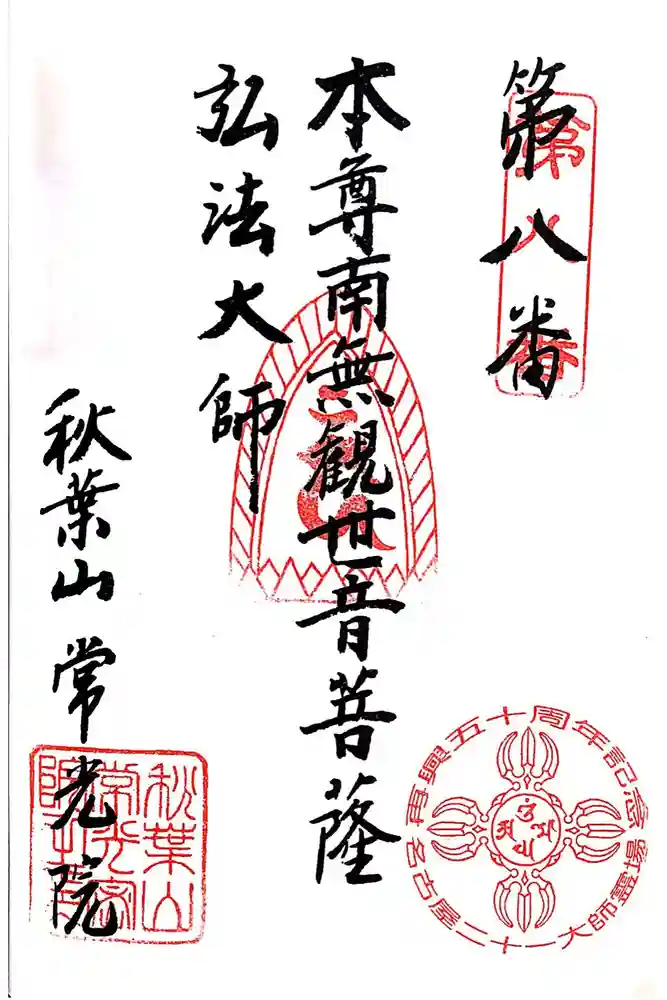 第八番
第八番
本尊南無観世音菩薩
弘法大師
秋葉山常光院
秋葉山
常光院
再興五十周年記念
名古屋二十一大師霊場